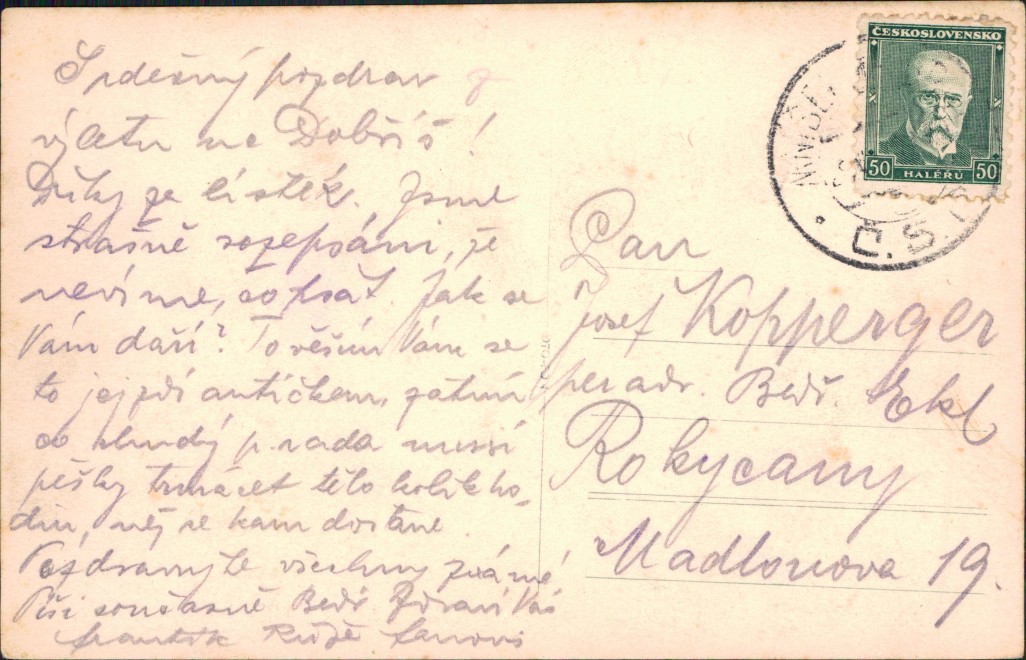 Srdečný pozdrav z
výletu na Dobříš!
Díky za lístek. Jsme
strašně rozepsáni, že
nevíme, co psát. Jak se
Vám daří? To věřím Vám se
to jezdí autíčkem, zatím
co chudý p. rada musí
pěšky trmácet tělo kolik ho-
din, něj se kam dostane.
Pozdravujte všechny známé
Píši současně Bedř. Zdraví Vás
František
ČESKOSLOVENSKO
50 HALÉRŮ 50
MNÍŠEK
Č.S.
Pan
Josef Kopperger
per adr. Bedř. Ekl
Rokycany
Madlonova 19.